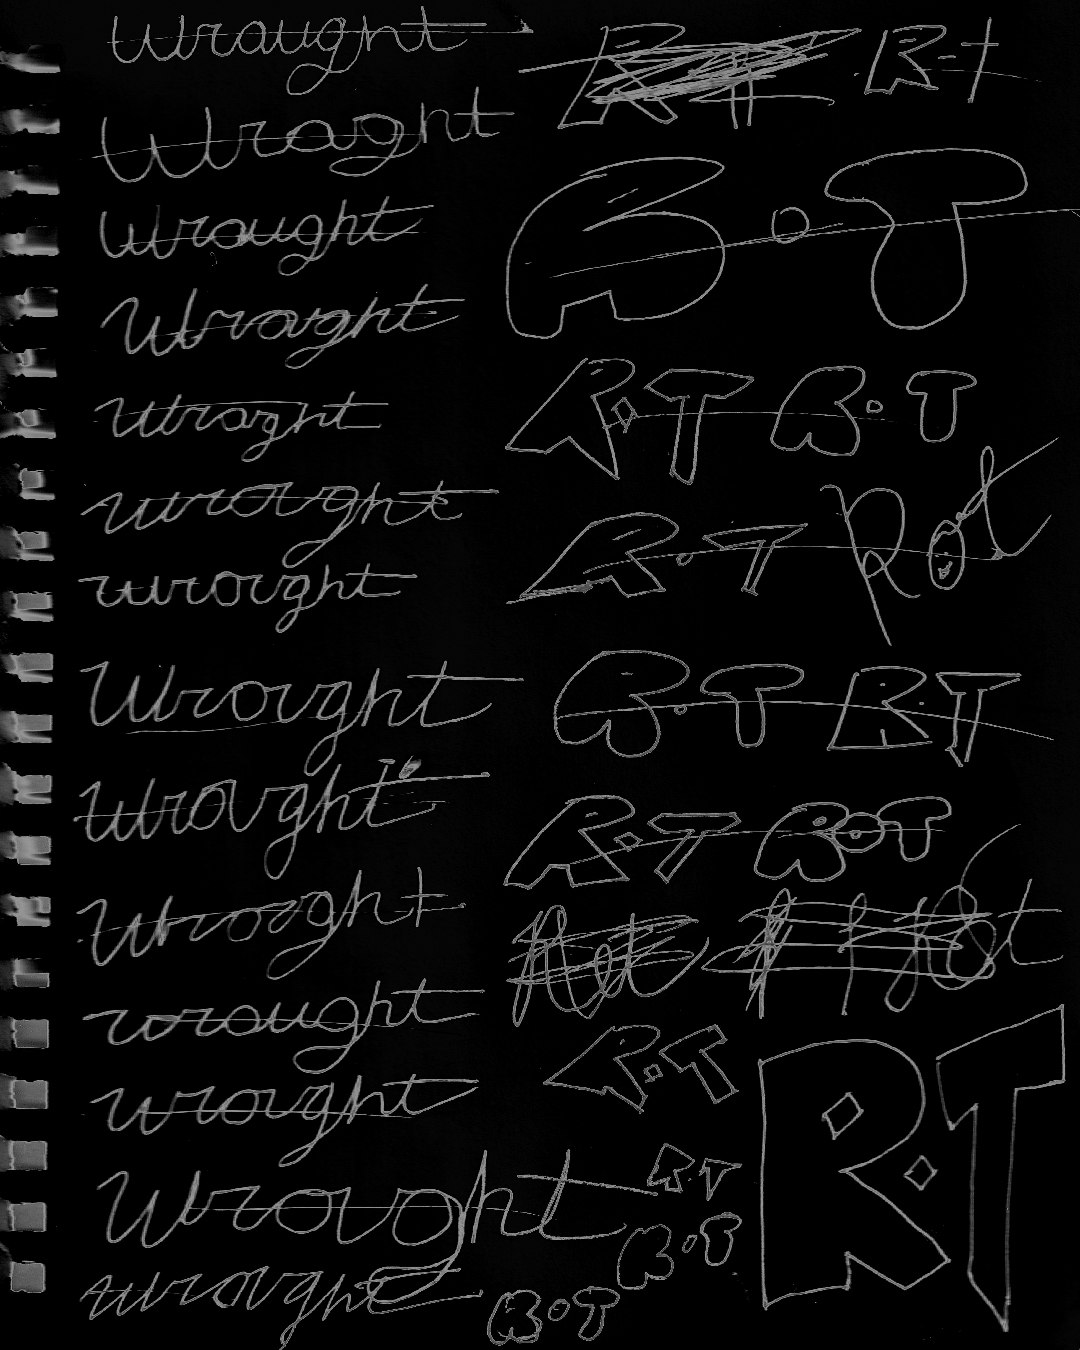 Wrought
Wroght
Wrought
Wroght
Wroght
wrought
wrought
Wrought
Wrought
Wroght
wrought
wrought
Wrought
wrought
R·T
R·T
R·T R·T
R·T Rot
R·T R·T
R·T ROT
R·T
R·T
R·T
R·T
ROT